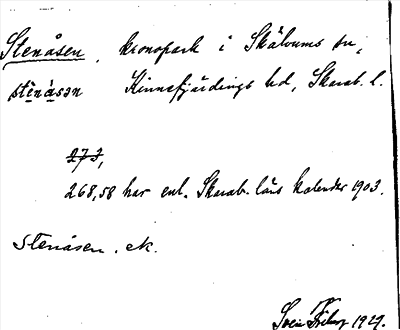 Stenåsen, kronopark i Skälvums sn,
stènåsən Kinnefjärdings hd, Skarab. l.
273,
268,58 har enl. Skarab. läns kalender 1903.
Stenåsen. ek.
1929.